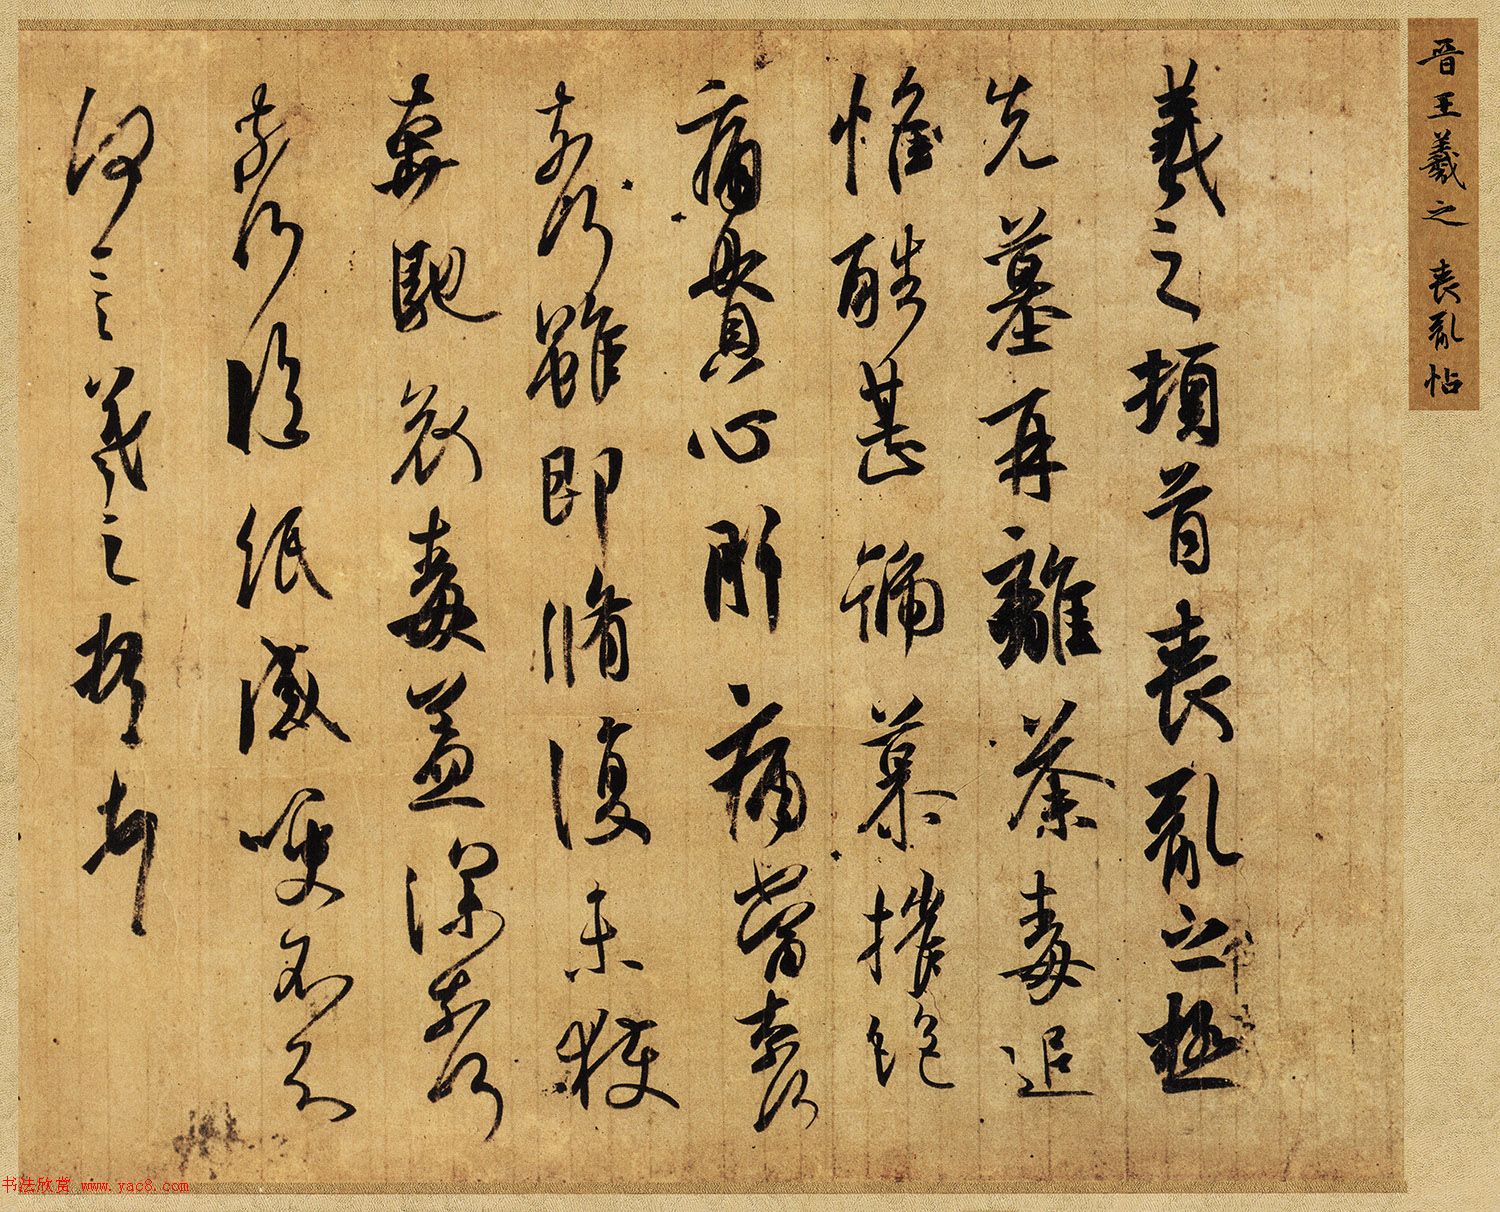 晋王羲之 丧乱帖
羲之頓首喪亂之極
先墓再離荼毒追
惟酷甚號慕摧絕
痛貫心肝痛當奈何
奈何雖即脩復未獲
奔馳哀毒益深奈何
奈何臨紙感哽不知
何言羲之頓首頓首
书法欣赏 www.yac8.com